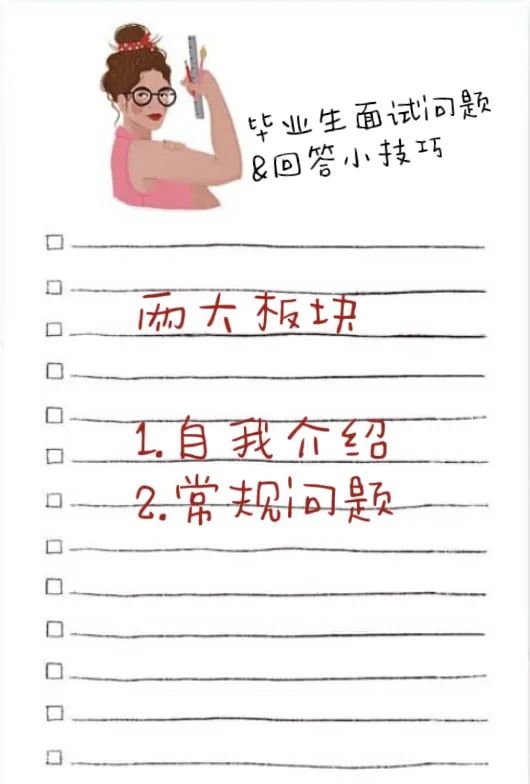 毕业生面试问题
&回答小技巧
两大板块
1.自我介绍
2.常规问题